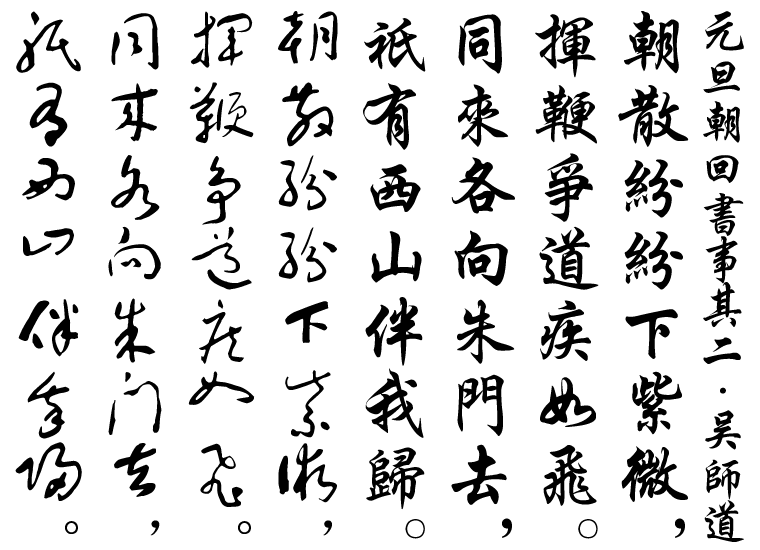 元旦朝回書事其二·吳師道
朝散紛紛下紫微，
揮鞭爭道疾如飛。
同來各向朱門去，
祇有西山伴我歸。
朝散紛紛下紫微，
揮鞭爭道疾如飛。
同來各向朱門去，
祇有西山伴我歸。